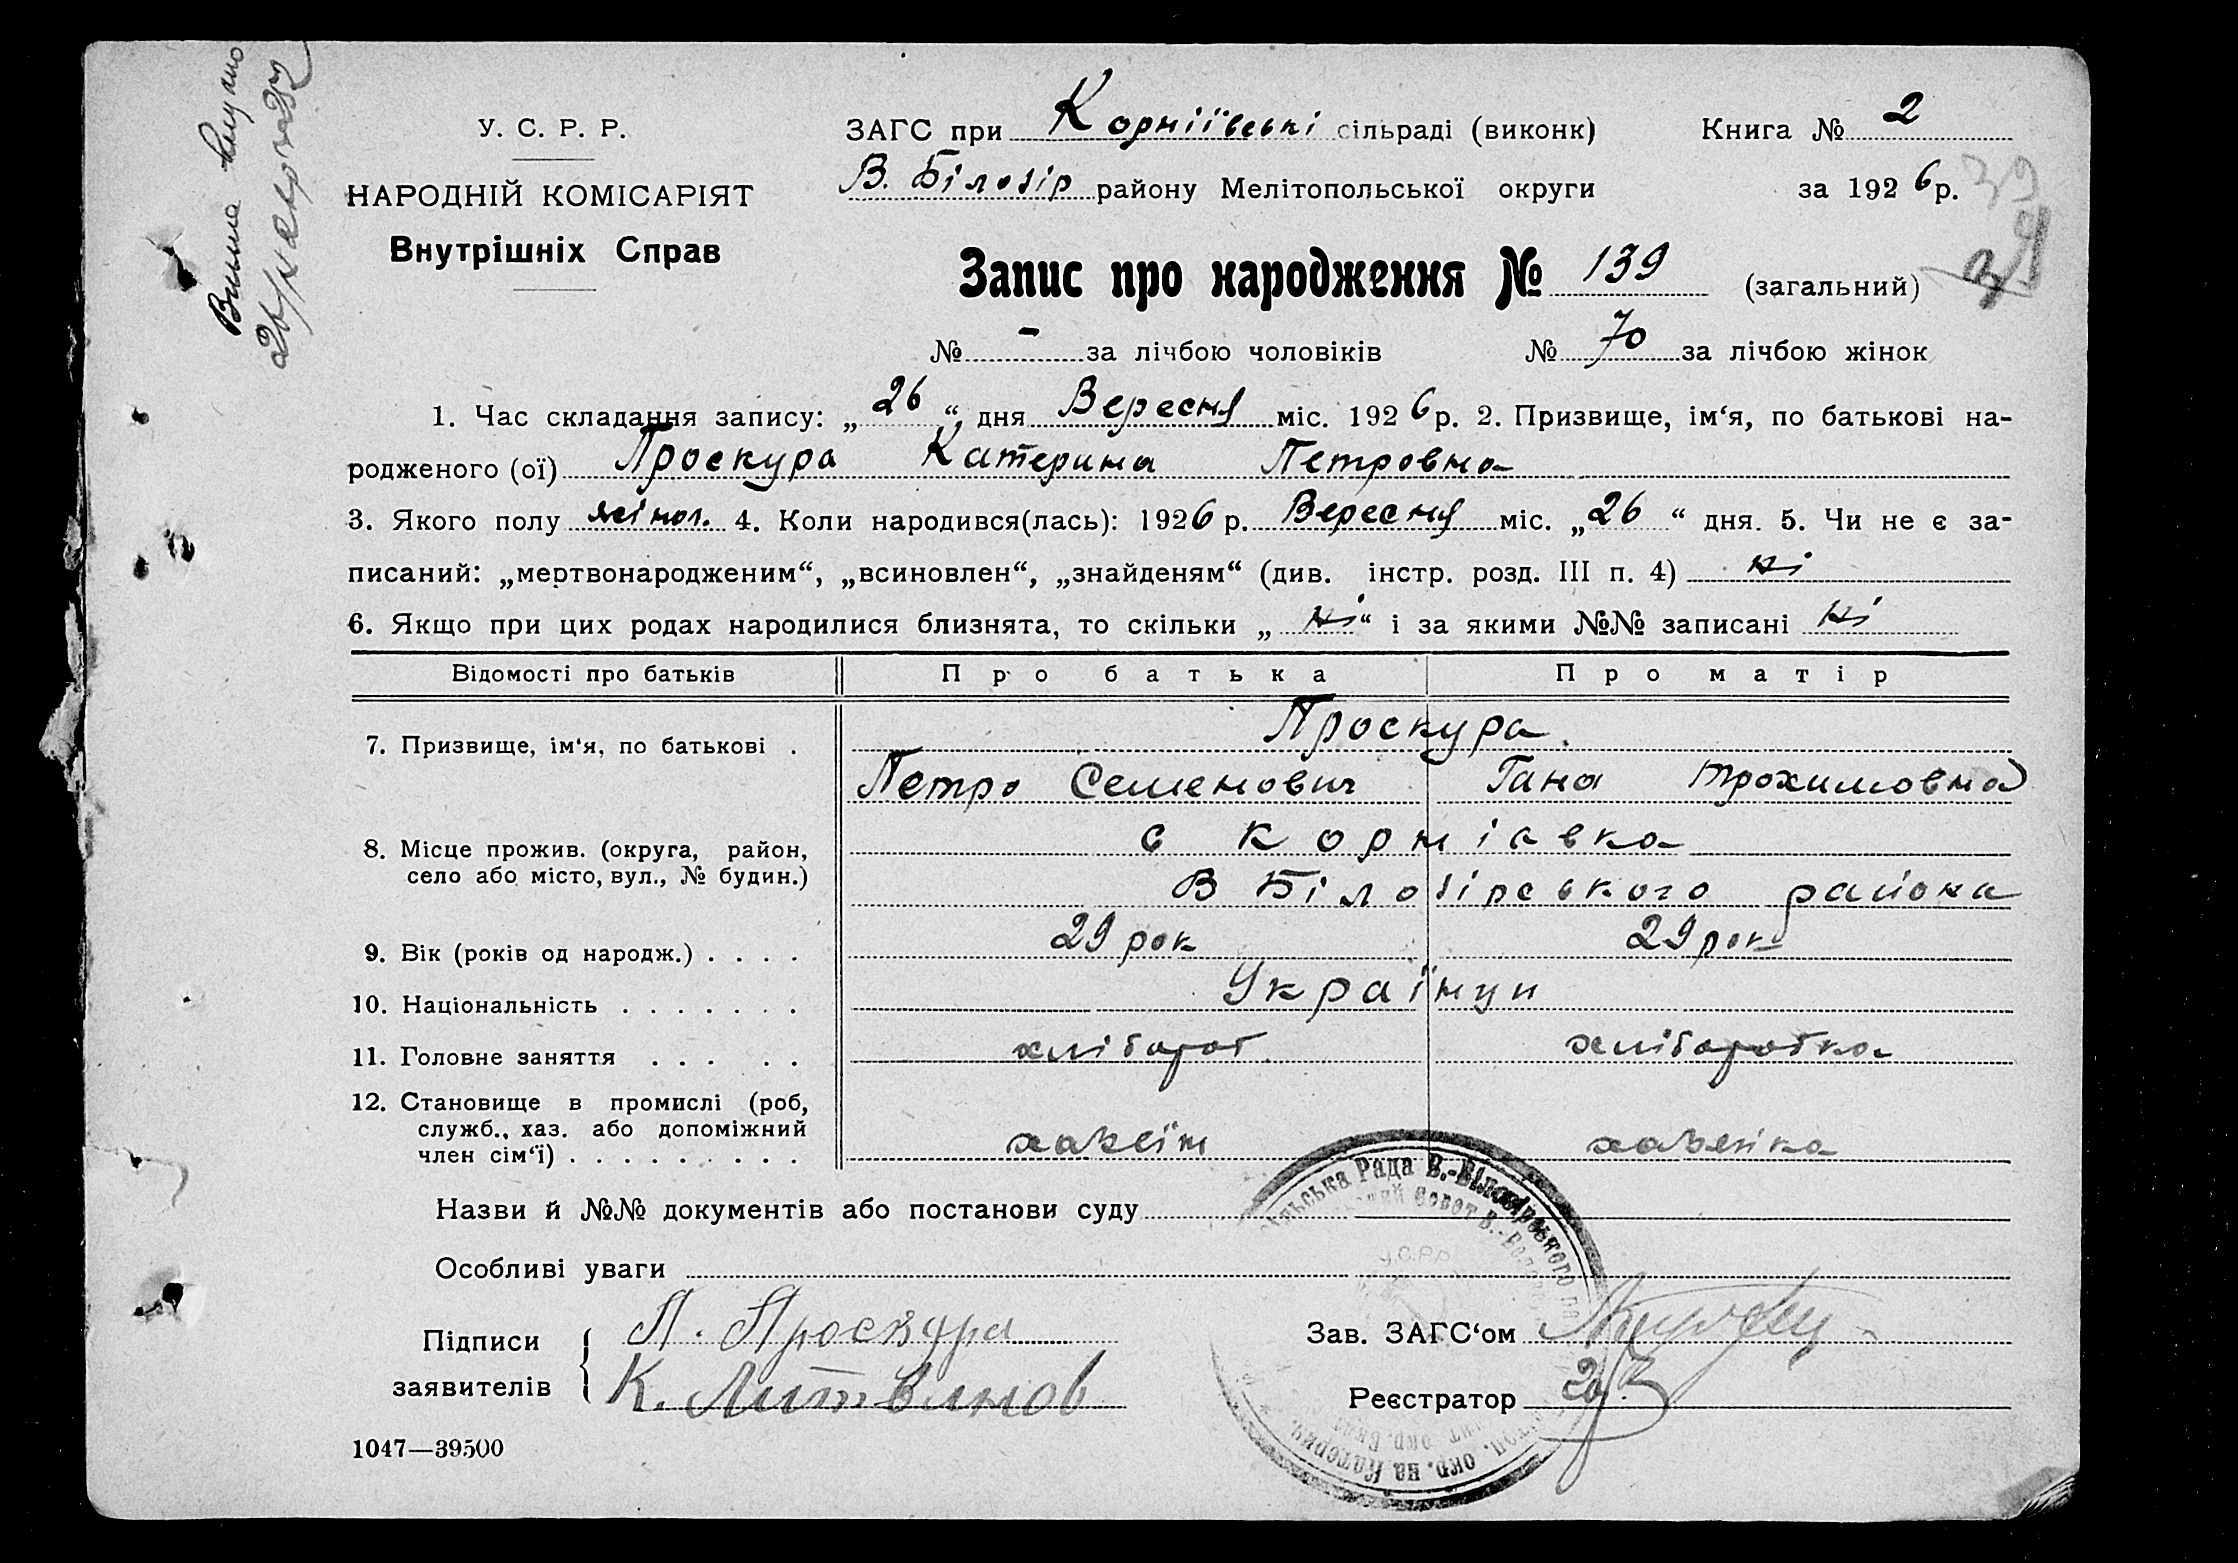 У. С. Р. Р.
НАРОДНІЙ КОМІСАРІЯТ
Внутрішніх Справ
ЗАГС при Корніївські сільраді (виконк) Книга № 2
В. Білозір району Мелітопольської округи за 1926 р.
39
Запис про народження № 139 (загальний)
№ - за лічбою чоловіків № 70 за лічбою жінок
1. Час складання запису: „26“ дня Вересня міс. 1926 р. 2. Призвище, ім‘я, по батькові на-
родженого (ої) Проскура Катерина Петровна
3. Якого полу жіноч. 4. Коли народився(лась): 1926 р. Вересня міс. „26“ дня. 5. Чи не є за-
писаний: „мертвонародженим“, „всиновлен“, „знайденям“ (див. інстр. розд. III п. 4) ні
6. Якщо при цих родах народилися близнята, то скільки „ні“ і за якими №№ записані ні
Відомості про батьків Про батька Про матір
7. Призвище, ім‘я, по батькові . Проскура.
Петро Семенович Гана Трохимовна
8. Місце прожив. (округа, район, с Корніавка
село або місто, вул., № будин.) В Білозірського района
9. Вік (років од народж.) . . . . 29 рок 29 рок
10. Національність . . . . . . . Українци
11. Головне заняття . . . . . хлібороб хлібаробка
12. Становище в промислі (роб,
служб., хаз. або допоміжний
член сім‘ї) . . . . . . . . . хазеїн хазяйка
Назви й №№ документів або постанови суду
Особливі уваги
Підписи П. Проскура
заявителів К. Литвинов
Зав. ЗАГС‘ом
Реєстратор
1047—39500